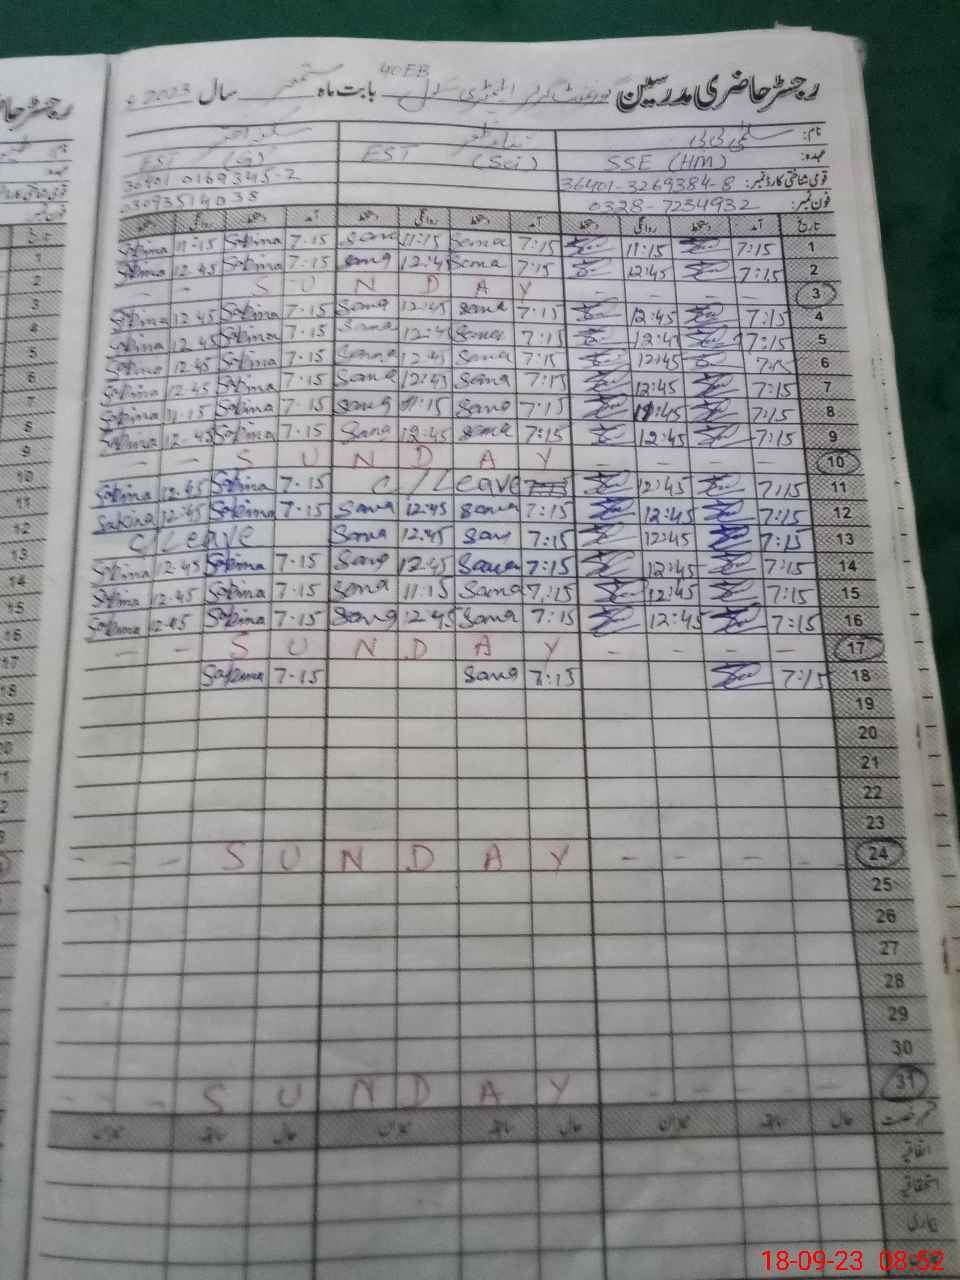 رجسٹر حاضری مدرسین گورنمنٹ گرلز ایلیمنٹری سکول 40EB بابت ماہ ستمبر سال 2023ء
نام: سلمیٰ بی بی
عہدہ: SSE (HM) EST (Sci) EST (G)
قومی شناختی کارڈ نمبر: 36401-3269384-8 36401-0169345-2
فون نمبر: 0328-7254932 03093514038
تاریخ آمد دستخط روانگی دستخط آمد دستخط روانگی دستخط آمد دستخط روانگی دستخط
Sakina 11:15 Sakina 7-15 Sana 11:15 Sana 7:15 11:15 7:15 1
Sakina 12.45 Sakina 7-15 Sana 12:45 Sana 7:15 12:45 7:15 2
- - S U N D A Y - - - - 3
Sakina 12.45 Sakina 7-15 Sana 12:45 Sana 7:15 12:45 7:15 4
Sakina 12.45 Sakina 7-15 Sana 12:45 Sana 7:15 12:45 7:15 5
Sakina 12.45 Sakina 7-15 Sana 12:45 Sana 7:15 12:45 7:15 6
Sakina 12.45 Sakina 7-15 Sana 12:45 Sana 7:15 12:45 7:15 7
Sakina 11-15 Sakina 7-15 Sana 11:15 Sana 7:15 11:45 7:15 8
Sakina 12-45 Sakina 7-15 Sana 12:45 Sana 7:15 12:45 7:15 9
- - S U N D A Y - - - - 10
Sakina 12.45 Sakina 7-15 C/Leave 12:45 7:15 11
Sakina 12:45 Sakina 7-15 Sana 12:45 Sana 7:15 12:45 7:15 12
C/Leave Sana 12:45 San 7:15 12:45 7:15 13
Sakina 12.45 Sakina 7-15 Sana 12:45 Sana 7:15 12:45 7:15 14
Sakina 12.45 Sakina 7-15 Sana 11:15 Sana 7:15 12:45 7:15 15
Sakina 12.45 Sakina 7-15 Sana 12:45 Sana 7:15 12:45 7:15 16
- - S U N D A Y - - - - 17
Sakina 7-15 Sana 7:15 7:15 18
19
20
21
22
23
- - - S U N D A Y - - - - 24
25
26
27
28
29
30
- - - S U N D A Y - - - - 31
قسم رخصت حال سابقہ میزان حال سابقہ میزان حال سابقہ میزان
اتفاقیہ
استحقاقیہ
بیماری
18-09-23 08:52